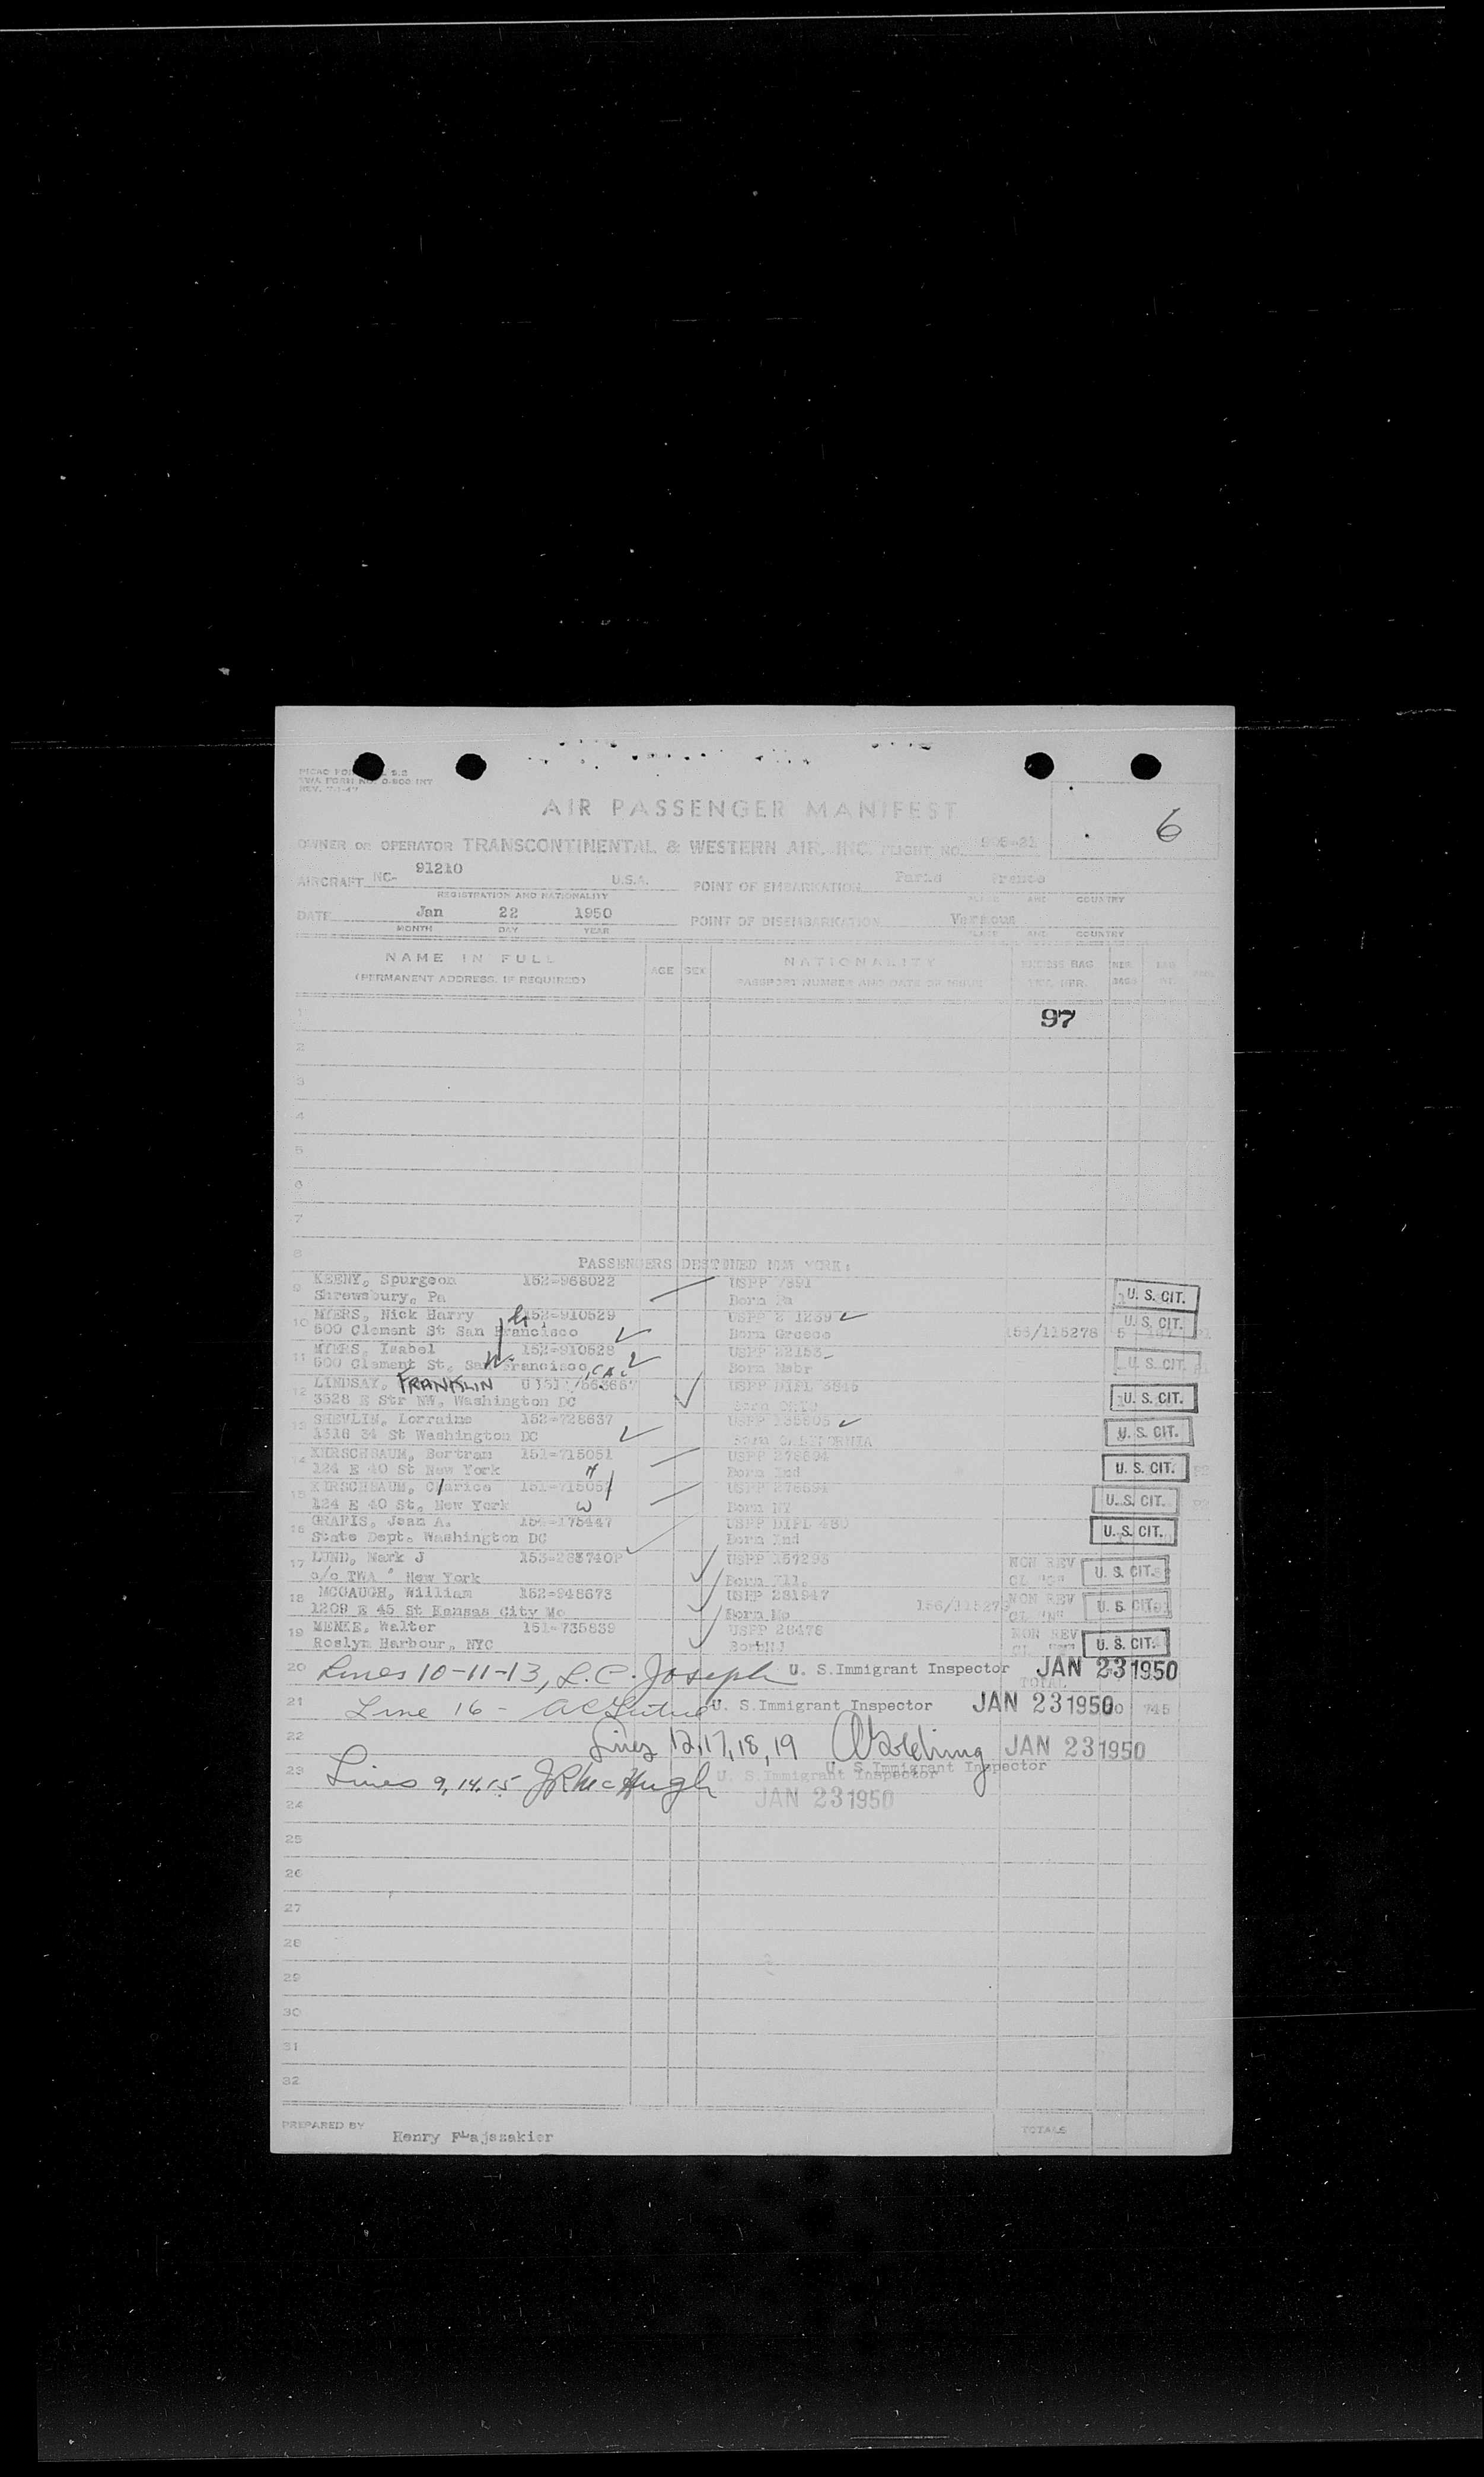 AIR PASSENGER MANIFEST
6
OWNER OR OPERATOR TRANSCONTINENTAL & WESTERN AIR, INC. FLIGHT NO.
AIRCRAFT NC- 91210 U.S.A. POINT OF EMBARKATION
REGISTRATION AND NATIONALITY PLACE AND COUNTRY
DATE Jan 22 1950 POINT OF DISEMBARKATION Various
MONTH DAY YEAR PLACE AND COUNTRY
NAME IN FULL AGE SEX NATIONALITY EXCESS BAG
(PERMANENT ADDRESS, IF REQUIRED) PASSPORT NUMBER AND DATE OF ISSUE
1 97
2
3
4
5
6
7
8 PASSENGERS DESTINED NEW YORK:
9 KEENY, Spurgeon 152-968022 USPP 7891
Shrewsbury, Pa Born Pa U. S. CIT.
10 MYERS, Nick Harry 152-910529 USPP 1239 U. S. CIT.
500 Clement St San Francisco Born Greece 156/115278 5
11 MYERS, Isabel 152-910528 USPP
500 Clement St, San Francisco, CA. Born Nebr U. S. CIT.
12 LINDSAY, FRANKLIN USPP DIPL
3528 E Str NW, Washington DC U. S. CIT.
13 SHEVLIN, Lorraine 152-728637 USPP
1516 34 St Washington DC Born CALIFORNIA U. S. CIT.
14 KIRSCHBAUM, Bertram 151-715051 USPP 278694
124 E 40 St New York H Born Ind U. S. CIT.
15 KIRSCHBAUM, Clarice USPP 278694
124 E 40 St, New York W Born NY U. S. CIT.
16 GRAFIS, Jean A. USPP DIPL 480
State Dept. Washington DC Born Ind U. S. CIT.
17 LUND, Mark J USPP 157293 NON REV
c/o TWA New York Born Ill. U. S. CIT.
18 MCGAUGH, William 152-948673 USPP 281947 NON REV
1209 E 45 St Kansas City Mo Born Mo CL "N" U. S. CIT.
19 MENKE, Walter 151-735839 USPP 28476 NON REV
Roslyn Harbour, NYC Born NJ U. S. CIT.
20 Lines 10-11-13, L.C. Joseph U. S. Immigrant Inspector JAN 23 1950
TOTAL
21 Line 16 - U. S. Immigrant Inspector JAN 23 1950 745
22 Lines 12, 17, 18, 19 Golding JAN 23 1950
U. S. Immigrant Inspector
23 Lines 9, 14, 15 JR McHugh U. S. Immigrant Inspector
24 JAN 23 1950
25
26
27
28
29
30
31
32
PREPARED BY Henry TOTALS